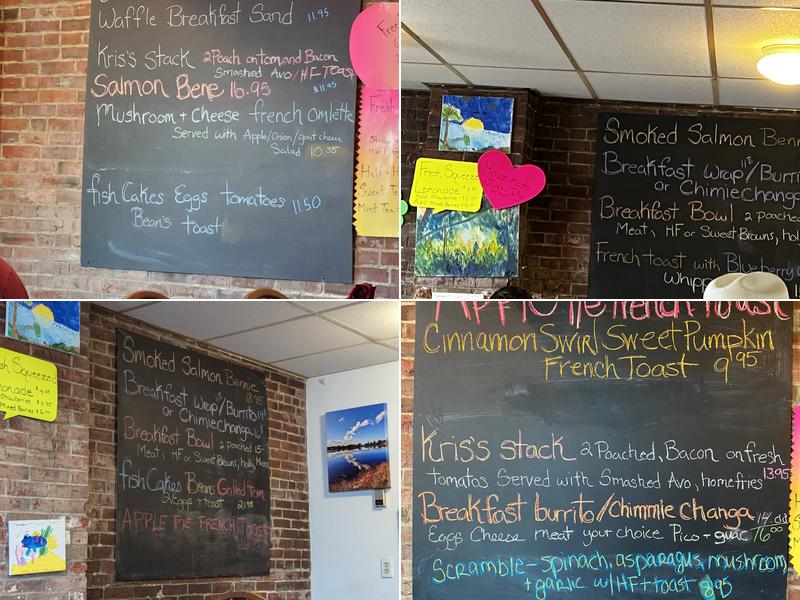 Waffle Breakfast Sand 11.95
Kris's Stack 2 Poach on tom and Bacon
Smashed Avo/HF-Toast
$11.95
Salmon Bene 16.95
Mushroom + Cheese french omlette
Served with Apple/onion/goat cheese
Salad 10.95
fish Cakes Eggs tomatoes 11.50
Bean's toast
Fresh
Half + H
Sweet Te
Mint Tea
Fresh Squeezed
Lemonade
House made
Smoked Salmon Benn
Breakfast Wrap/Burri
or Chimiechanga
Breakfast Bowl 2 poached
Meat, HF or Sweet Browns, holl
French toast with Blueberry
Whipp
sh Squeezed
onade $4.95
Strawberries $5.95
Mixed Berries $6.00
Smoked Salmon Bennie
18.95
Breakfast Wrap/Burrito
or Chimiechanga
Breakfast Bowl 2 poached 15-
Meat, HF or Sweet Browns, holly
fish Cakes Beans Grilled tom
2 Eggs + toast 21.95
APPLE PIE FRENCH TOAST
Apple Pie French Toast
Cinnamon Swirl Sweet Pumpkin
French Toast 9.95
Kris's stack 2 Poached, Bacon on fresh
tomatos Served with Smashed Avo, homefries 13.95
Breakfast burrito/Chimmie Changa 14.00
Eggs Cheese meat your choice Pico + guac 16.00
Scramble - spinach, asparagus, mushroom,
+ garlic w/HF + toast 8.95